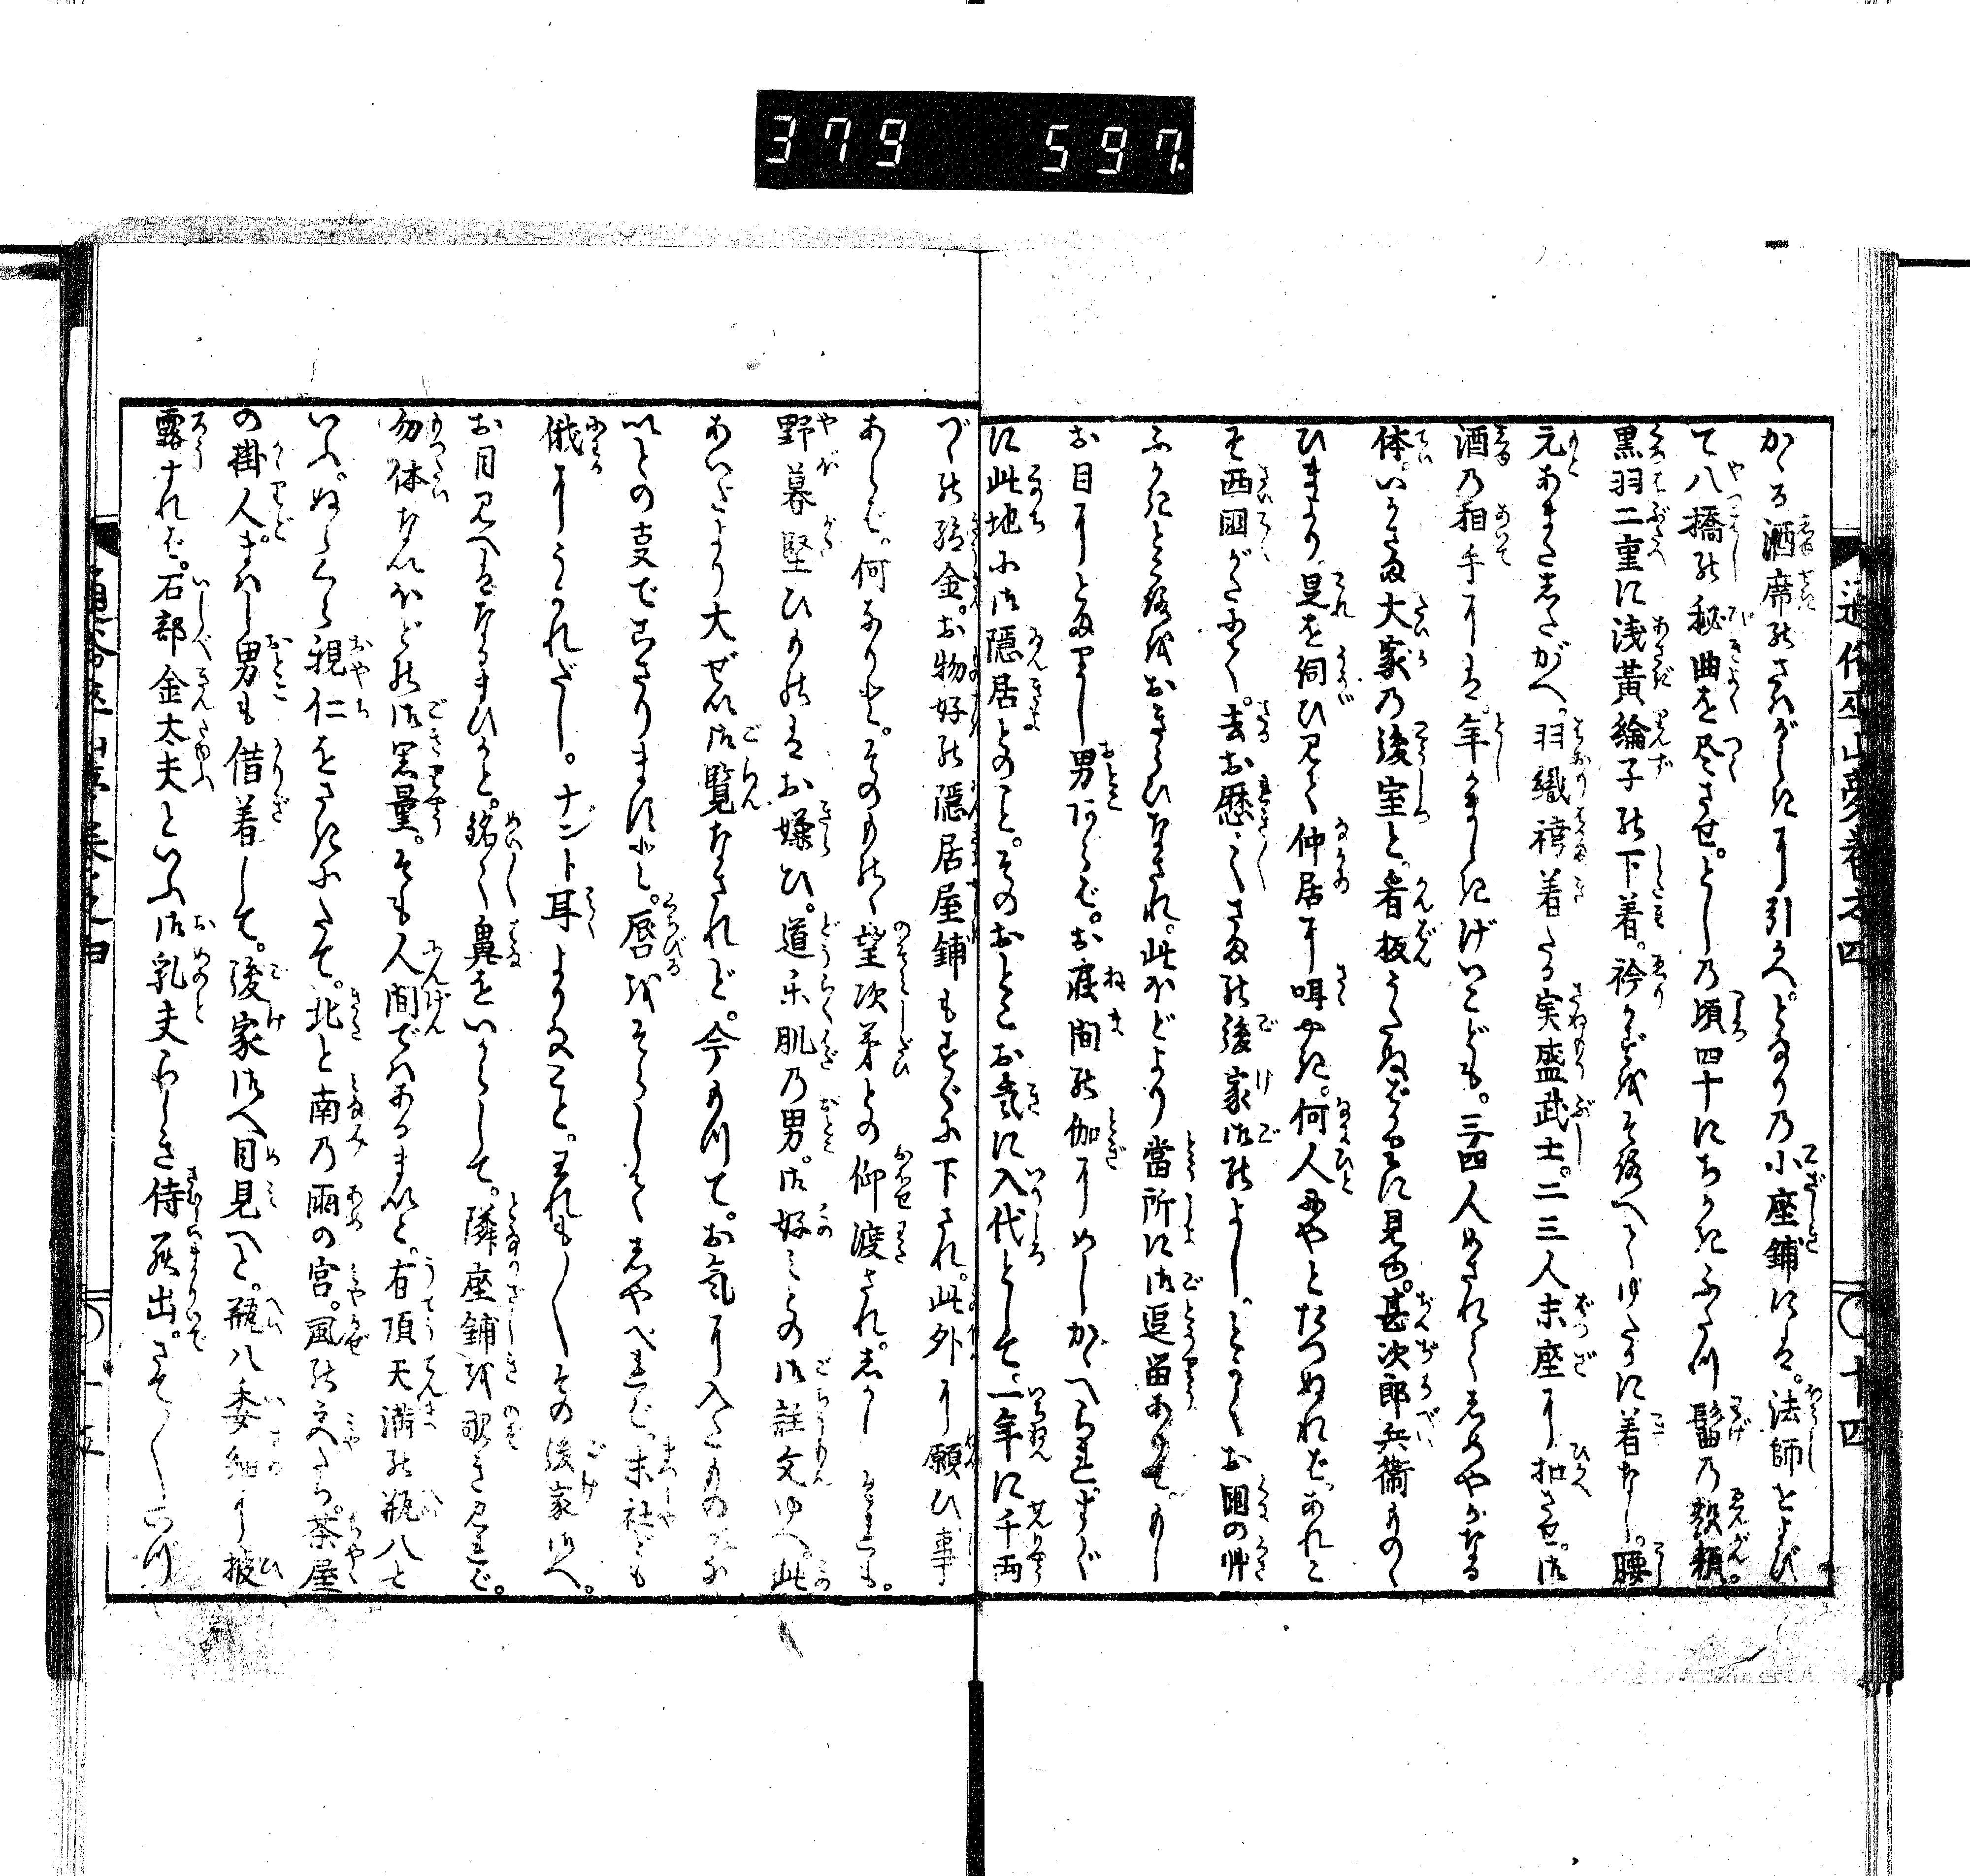 379 597
通俗巫山夢巻之四 十四
かゝる酒席のさわがしきに引かへ。となりの小座鋪には。法師をよび
て八橋の秘曲を尽させ。としの頃四十にちかきふたつ髷の
黒羽二重に浅黄綸子の下着。衿かずをそろへてゆたかに着なし。腰
元あまたしたがへ。羽織袴着たる実盛武士。二三人末座に扣させ。御
酒の相手には。年かましきげいこども。三四人めされてしめやかなる
体。いかさま大家の後室と。看板うたねどそれに見へ。甚次郎兵衛ものゝ
ひまより。是を伺ひ見て仲居に咡やき。何人にやとたづぬれば。あれこ
そ西国がたにて。去お歴々さまの後家御のよし。とかくお国の
ふかきところをおきらひなされ。此ほどより当所に御逗留あそばし
お目にとまりし男あらば。お寝間の伽にめしかゝへられすぐ
に此地に御隠居とのこと。そのおとこお気に入代として。一年に千両
づゝの給金。お物好の隠居屋鋪もすぐに下され。此外に願ひ事
あらば。何なりと。そのものゝ望次第との仰渡され。しかし
野暮堅ひのはお嫌ひ。道楽肌の男。御好との御註文ゆへ。此
あいだより大ぜい御覧なされど。今もつて。お気に入たものがな
いとの事でござりますと。唇をそらしてしやべれば。末社ども
俄にうかれだし。ナント耳よりなこと。それも〳〵その後家御へ。
お目見へはなるまひかと。銘々鼻をいからして。隣座鋪を覗き見れば。
勿体ないほどの御器量。そも人間ではあるまいと。有頂天満の瓶八と
いふ。ぬらくら親仁をさきにたて。北と南の雨の宮。風の宮すら。茶屋
の掛人。まわし男も借着して。後家御へ目見へと。瓶八委細に披
露すれば。石部金太夫といふ御乳夫らしき侍罷出。さて〳〵いづ